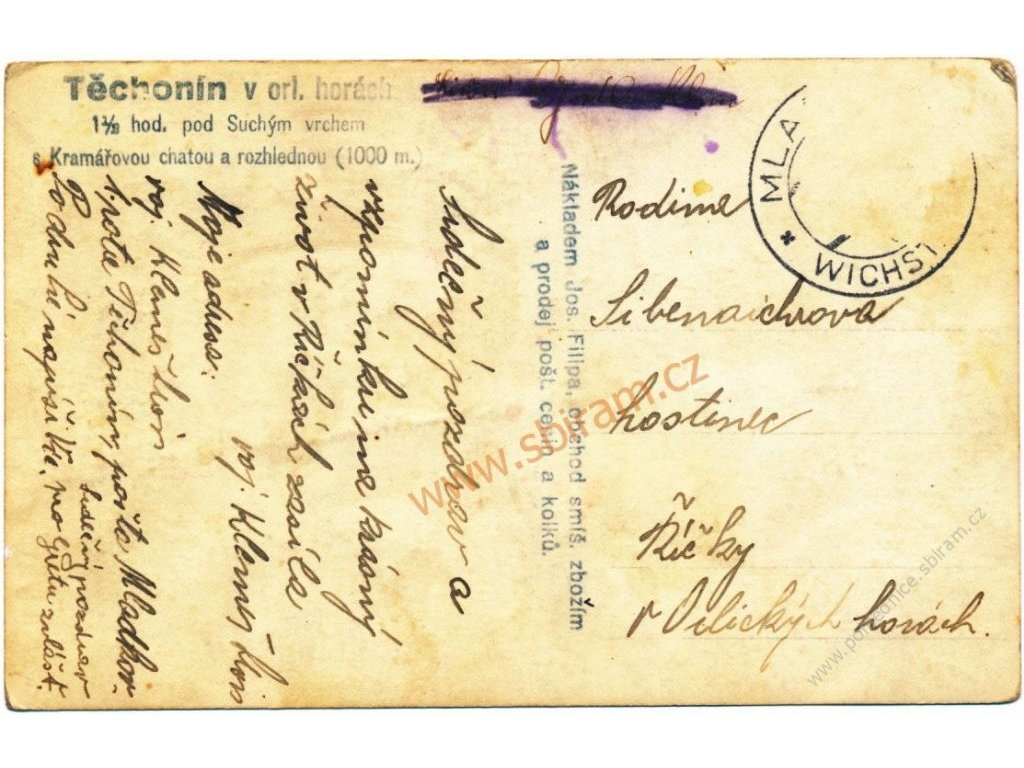 Těchonín v orl. horách
1½ hod. pod Suchým vrchem
s Kramářovou chatou a rozhlednou (1000 m.)
Srdečný pozdrav a
vzpomínku na krásný
život v Říčkách zasílá
voj. Klemeš
Moje adresa:
voj. Klemeš
Těchonín, pošta Mladkov.
Srdečný pozdrav
Nákladem Jos. Filipa, obchod smíš. zbožím
a prodej pošt. cenin a kolků.
MLA
* WICHST
Rodina
Sibenaichrova
hostinec
Říčky
v Orlických horách.
www.sbiram.cz
www.pohlednice.sbiram.cz